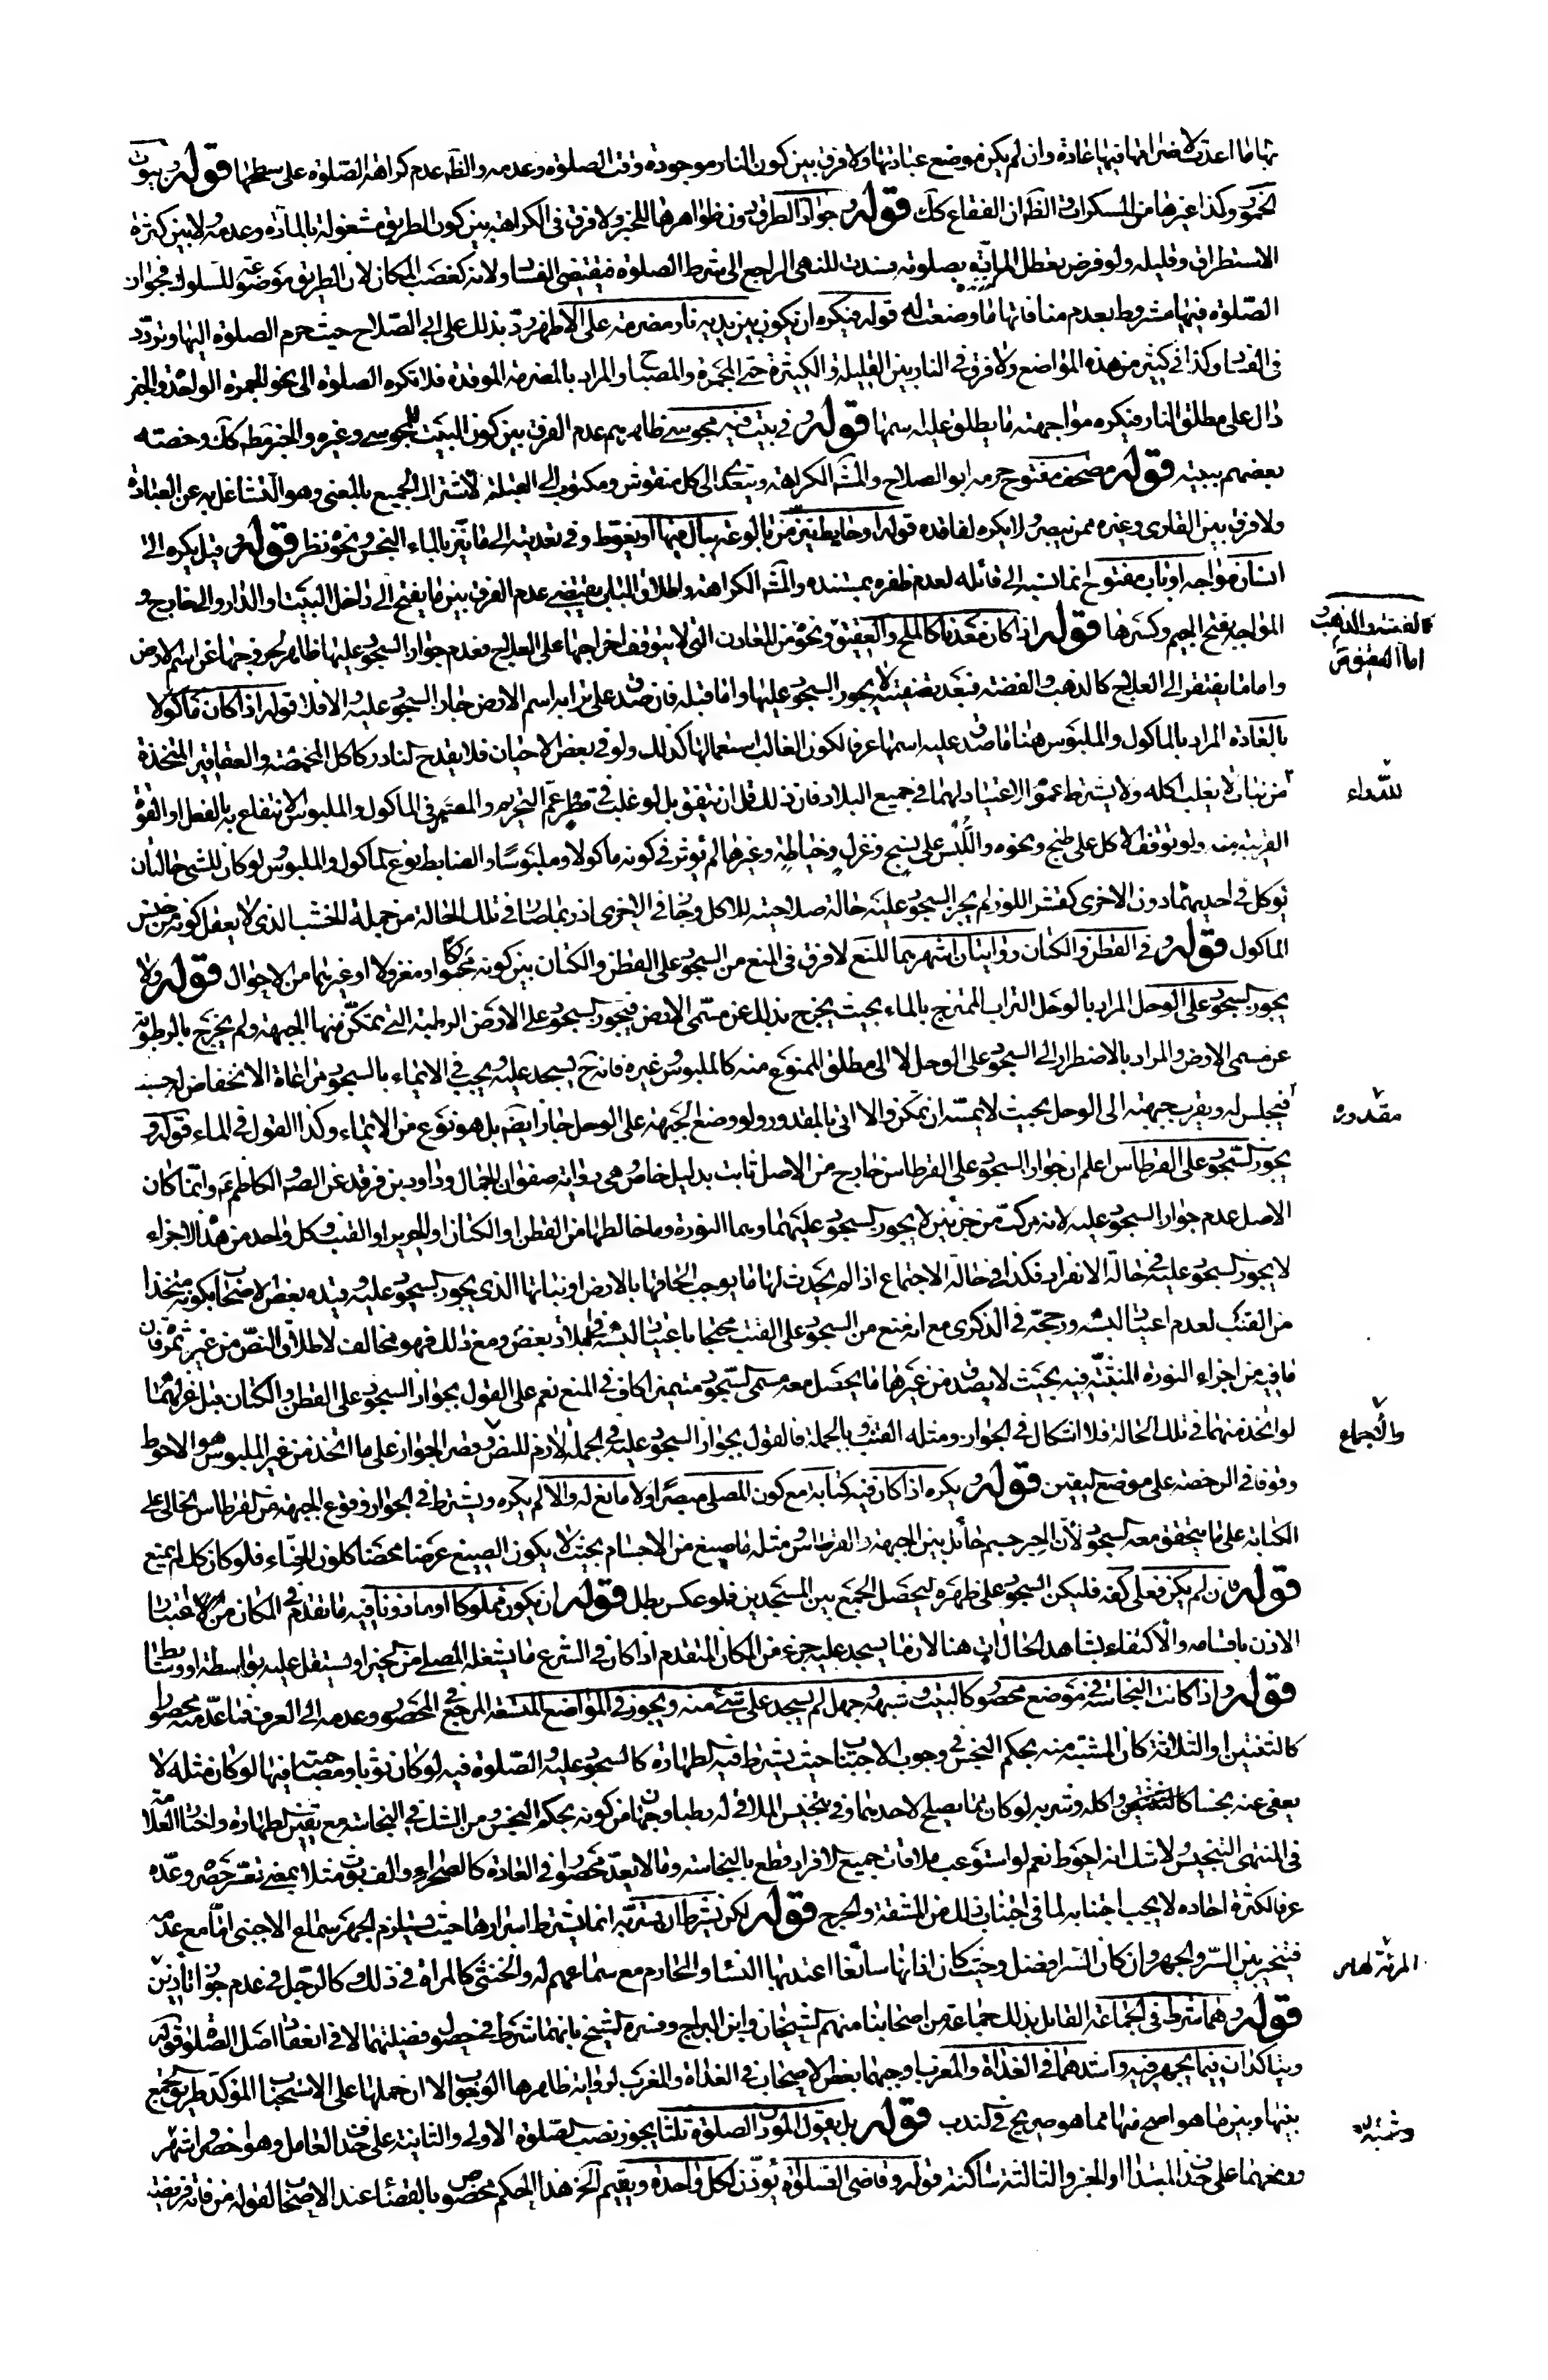 بها ما اعدت لاضرامها فيها عادة وان لم يكن موضع عبادتها ولا فرق بين كون النار موجودة وقت الصلوة وعدمه والظ عدم كراهة الصلوة على سطحها قوله وبيوت
الخمور وكذا غيرها من المسكرات والظ ان الفقاع كك قوله وجواد الطرق دون ظواهرها للخبر ولا فرق في الكراهة بين كون الطريق مشغولة بالمارة وعدمه ولا بين كثرة
الاستطراق وقليله ولو فرض تعطل المارة بصلوته فسدت للنهي الراجع الى شرط الصلوة فيقتضي الفساد ولانه كغصب المكان لان الطريق موضوعة للسلوك فجواز
الصلوة فيها مشروط بعدم منافاتها ما وضعت له قوله فيكره ان يكون بين يديه نار مضرمة على الاظهر رد بذلك على ابي الصلاح حيث حرم الصلوة اليها وتردد
في الفساد وكذا في كثير من هذه المواضع ولا فرق في النار بين القليلة والكثيرة حتى المجمرة والمصباح والمراد بالمضرمة الموقدة فلا تكره الصلوة الى نحو الجمرة الواحدة والخبر
دال على مطلق النار فيكره مواجهته ما يطلق عليه اسمها قوله وفي بيت فيه مجوسي ظاهرهم عدم الفرق بين كون البيت للمجوسي وغيره والخبر مط كك وخصه
بعضهم ببيته قوله مصحف مفتوح حرمه ابو الصلاح والمشه الكراهة ويتعدى الى كل منقوش ومكتوب الى القبلة لاشتراك الجميع بالمعنى وهو التشاغل به عن العبادة
ولا فرق بين القاري وغيره ممن يبصر ولا يكره لفاقده قوله او حايط ينز من بالوعة يبال فيها او يغوط وفي تعديته الى ما ينز بالماء النجس ونحوه نظر قوله وقيل يكره الى
انسان مواجه او باب مفتوح انما نسبه الى قائله لعدم ظفره بمستنده والمشه الكراهة واطلاق الباب يقتضي عدم الفرق بين ما يفتح الى داخل البيت او الدار والى خارج و
المواجه بفتح الجيم وكسرها قوله اذا كان معدنا كالملح والعقيق ونحوه من المعادن التي لا يتوقف اخراجها على العلاج فعدم جواز السجود عليها ظاهر لخروجها عن اسم الارض
واما ما يفتقر الى العلاج كالذهب والفضة فبعد تصفيته لا يجوز السجود عليها واما قبله فان صدق على ترابه اسم الارض جاز السجود عليه والا فلا قوله اذا كان ماكولا
بالعادة المراد بالماكول والملبوس هنا ما صدق عليه اسمها عرفا لكون الغالب استعمالها كذلك ولو في بعض الاحيان فلا يقدح النادر كاكل المخمصة والعقاقير المتخذة
من نبات لا يغلب اكله ولا يشترط عموم الاعتياد لهما في جميع البلاد فان ذلك قل ان يتفق بل لو غلب في قطر عم التحريم والمعتبر في الماكول والملبوس الانتفاع به بالفعل او القوة
القريبة منه ولو توقف الاكل على طبخ ونحوه واللبس على نسج وغزل وخياطة وغيرها لم يؤثر في كونه ماكولا وملبوسا والضابط نوع الماكول والملبوس لو كان للشئ حالتان
يؤكل في احديهما دون الاخرى كقشر اللوز لم يجز السجود عليه حالة صلاحيته للاكل وجاز في الاخرى اذ ربما صار في تلك الحالة من جملة الخشب الذي لا يعقل كونه من جنس
الماكول قوله وفي القطن والكتان روايتان اشهرهما المنع لا فرق في المنع من السجود على القطن والكتان بين كونه محبوكا او مغزولا او غيرهما من الاحوال قوله ولا
يجوز السجود على الوحل المراد بالوحل التراب الممتزج بالماء بحيث يخرج بذلك عن مسمى الارض فيجوز السجود على الارض الرطبة التي يتمكن منها الجبهة ولم يخرج بالرطوبة
عن مسمى الارض والمراد بالاضطرار الى السجود على الوحل لا الى مطلق الممنوع منه كالملبوس وغيره فانه ح يسجد عليه ويجب في الايماء بالسجود مراعاة الانخفاض له حسب
فيجلس له ويقرب جبهته الى الوحل بحيث لا يمسه ان تمكن والا اتى بالمقدور ولو وضع الجبهة على الوحل جاز ايضم بل هو نوع من الايماء وكذا القول في الماء قوله و
يجوز السجود على القرطاس اعلم ان جواز السجود على القرطاس خارج من الاصل ثابت بدليل خاص هي رواية صفوان الجمال وداود بن فرقد عن الصه الكاظم ع وانما كان
الاصل عدم جواز السجود عليه لانه مركب من جزئين لا يجوز السجود عليهما وهما النورة وما خالطها من القطن او الكتان او الحرير او القنب وكل واحد من هذه الاجزاء
لا يجوز السجود عليه في حالة الانفراد فكذا في حالة الاجتماع اذا لم يحدث لها ما يوجب الحاقها بالارض او نباتها الذي يجوز السجود عليه وقيده بعض الاصحاب بكونه متخذا
من القنب لعدم اعتياد لبسه ورجحه في الذكرى مع انه منع من السجود على القنب محتجا باعتياد لبسه في بلاد بعض ومع ذلك فهو مخالف لاطلاق النص من غير ثمرة فان
ما فيه من اجزاء النورة المنبثة فيه بحيث لا يصدق من غيرها ما يحصل معه مسمى السجود متميزا كاف في المنع نعم على القول بجواز السجود على القطن والكتان قبل غزلهما
لو اتخذ منهما في تلك الحالة فلا اشكال في الجواز ومثله القنب وبالجملة فالقول بجواز السجود عليه في الجملة لازم للنص وقصر الجواز على ما اتخذ من غير الملبوس هو الاحوط
وقوفا في الرخصة على موضع اليقين قوله ويكره اذا كان فيه كتابة مع كون المصلي مبصرا ولا مانع له والا لم يكره ويشترط في الجواز وقوع الجبهة من القرطاس الخالي على
الكتابة على ما يتحقق معه السجود لان الحبر جسم حائل بين الجبهة والقرطاس ومثله ما صبغ من الاجسام بحيث لا يكون الصبغ عرضا محضا كلون الحناء فلو كان كك لم يمنع
قوله فان لم يكن فعلى كفه فليكن السجود على ظهره ليحصل الجمع بين المسجدين فلو عكس بطل قوله ان يكون مملوكا او ماذونا فيه ما تقدم في المكان من اعتبار
الاذن باقسامه والاكتفاء بشاهد الحال ات هنا لان ما يسجد عليه جزء من المكان المتقدم اذا كان في الشرع ما يشغله المصلي من الحيز او يستقل عليه بواسطة او وسائط
قوله واذا كانت النجاسة في موضع محصور كالبيت وشبهه وجهل لم يسجد على شئ منه ويجوز في المواضع المتسعة المرجع في المحصور وعدمه الى العرف فما عد منه محصورا
كالثنتين والثلاثة كان المشتبه منه بحكم النجس في وجوب الاجتناب حيث يشترط فيه الطهارة كالسجود عليه والصلوة فيه لو كان ثوبا ومصاحبته فيها لو كان مثله لا
يعفى عنه نجسا واكله وشربه لو كان مما يصلح لاحدهما وفي تنجيس الملاقي له رطبا وجهان من كونه بحكم النجس ومن الشك في النجاسة مع يقين الطهارة واختار العلامة
في المنتهى التنجيس ولا شك انه احوط نعم لو استوعب ملاقات جميع الافراد قطع بالنجاسة وما لا يعد محصورا في العادة كالصحراء والف بيوت مثلا بمعنى تعسر حصره وعده
عرفا لكثرة احاده لا يجب اجتنابه لما في اجتناب ذلك من المشقة والحرج قوله لكن يشترط ان تسر به انما يشترط اسرارها حيث يستلزم الجهر سماع الاجنبي اما مع عدمه
فيتخير بين السر والجهر وان كان السر افضل وحيث كان اذانها سائغا اعتد بها النساء والمحارم مع سماعهم له والخنثى كالمراة في ذلك وكالرجل في عدم جواز تاذين
قوله وهما شرط في الجماعة القائل بذلك جماعة من اصحابنا منهم الشيخان وابن البراج وفسره الشيخ بانهما شرط في حصول فضيلتهما لا في انعقاد اصل الصلوة قوله
ويتاكدان فيما يجهر فيه واشدهما في الغداة والمغرب اوجبهما بعض الاصحاب في الغداة والمغرب لرواية ظاهرها الوجوب الا ان حملها على الاستحباب المؤكد طريق الجمع
بينها وبين ما هو اصح منها مما هو صريح في الندب قوله بل يقول المؤذن الصلوة ثلثا يجوز نصب الصلوة الاولى والثانية على حذف العامل وهو احضروا شهر
ورفعهما على حذف المبتدا او الخبر والثالثة ساكنة قوله وقاضي الصلوة يؤذن لكل واحدة ويقيم الخ هذا الحكم مخصوص بالقضاء عند الاصحاب لقوله من فاتته فريضة
للدواء
مقدوره
والاجماع
المرئة لهم